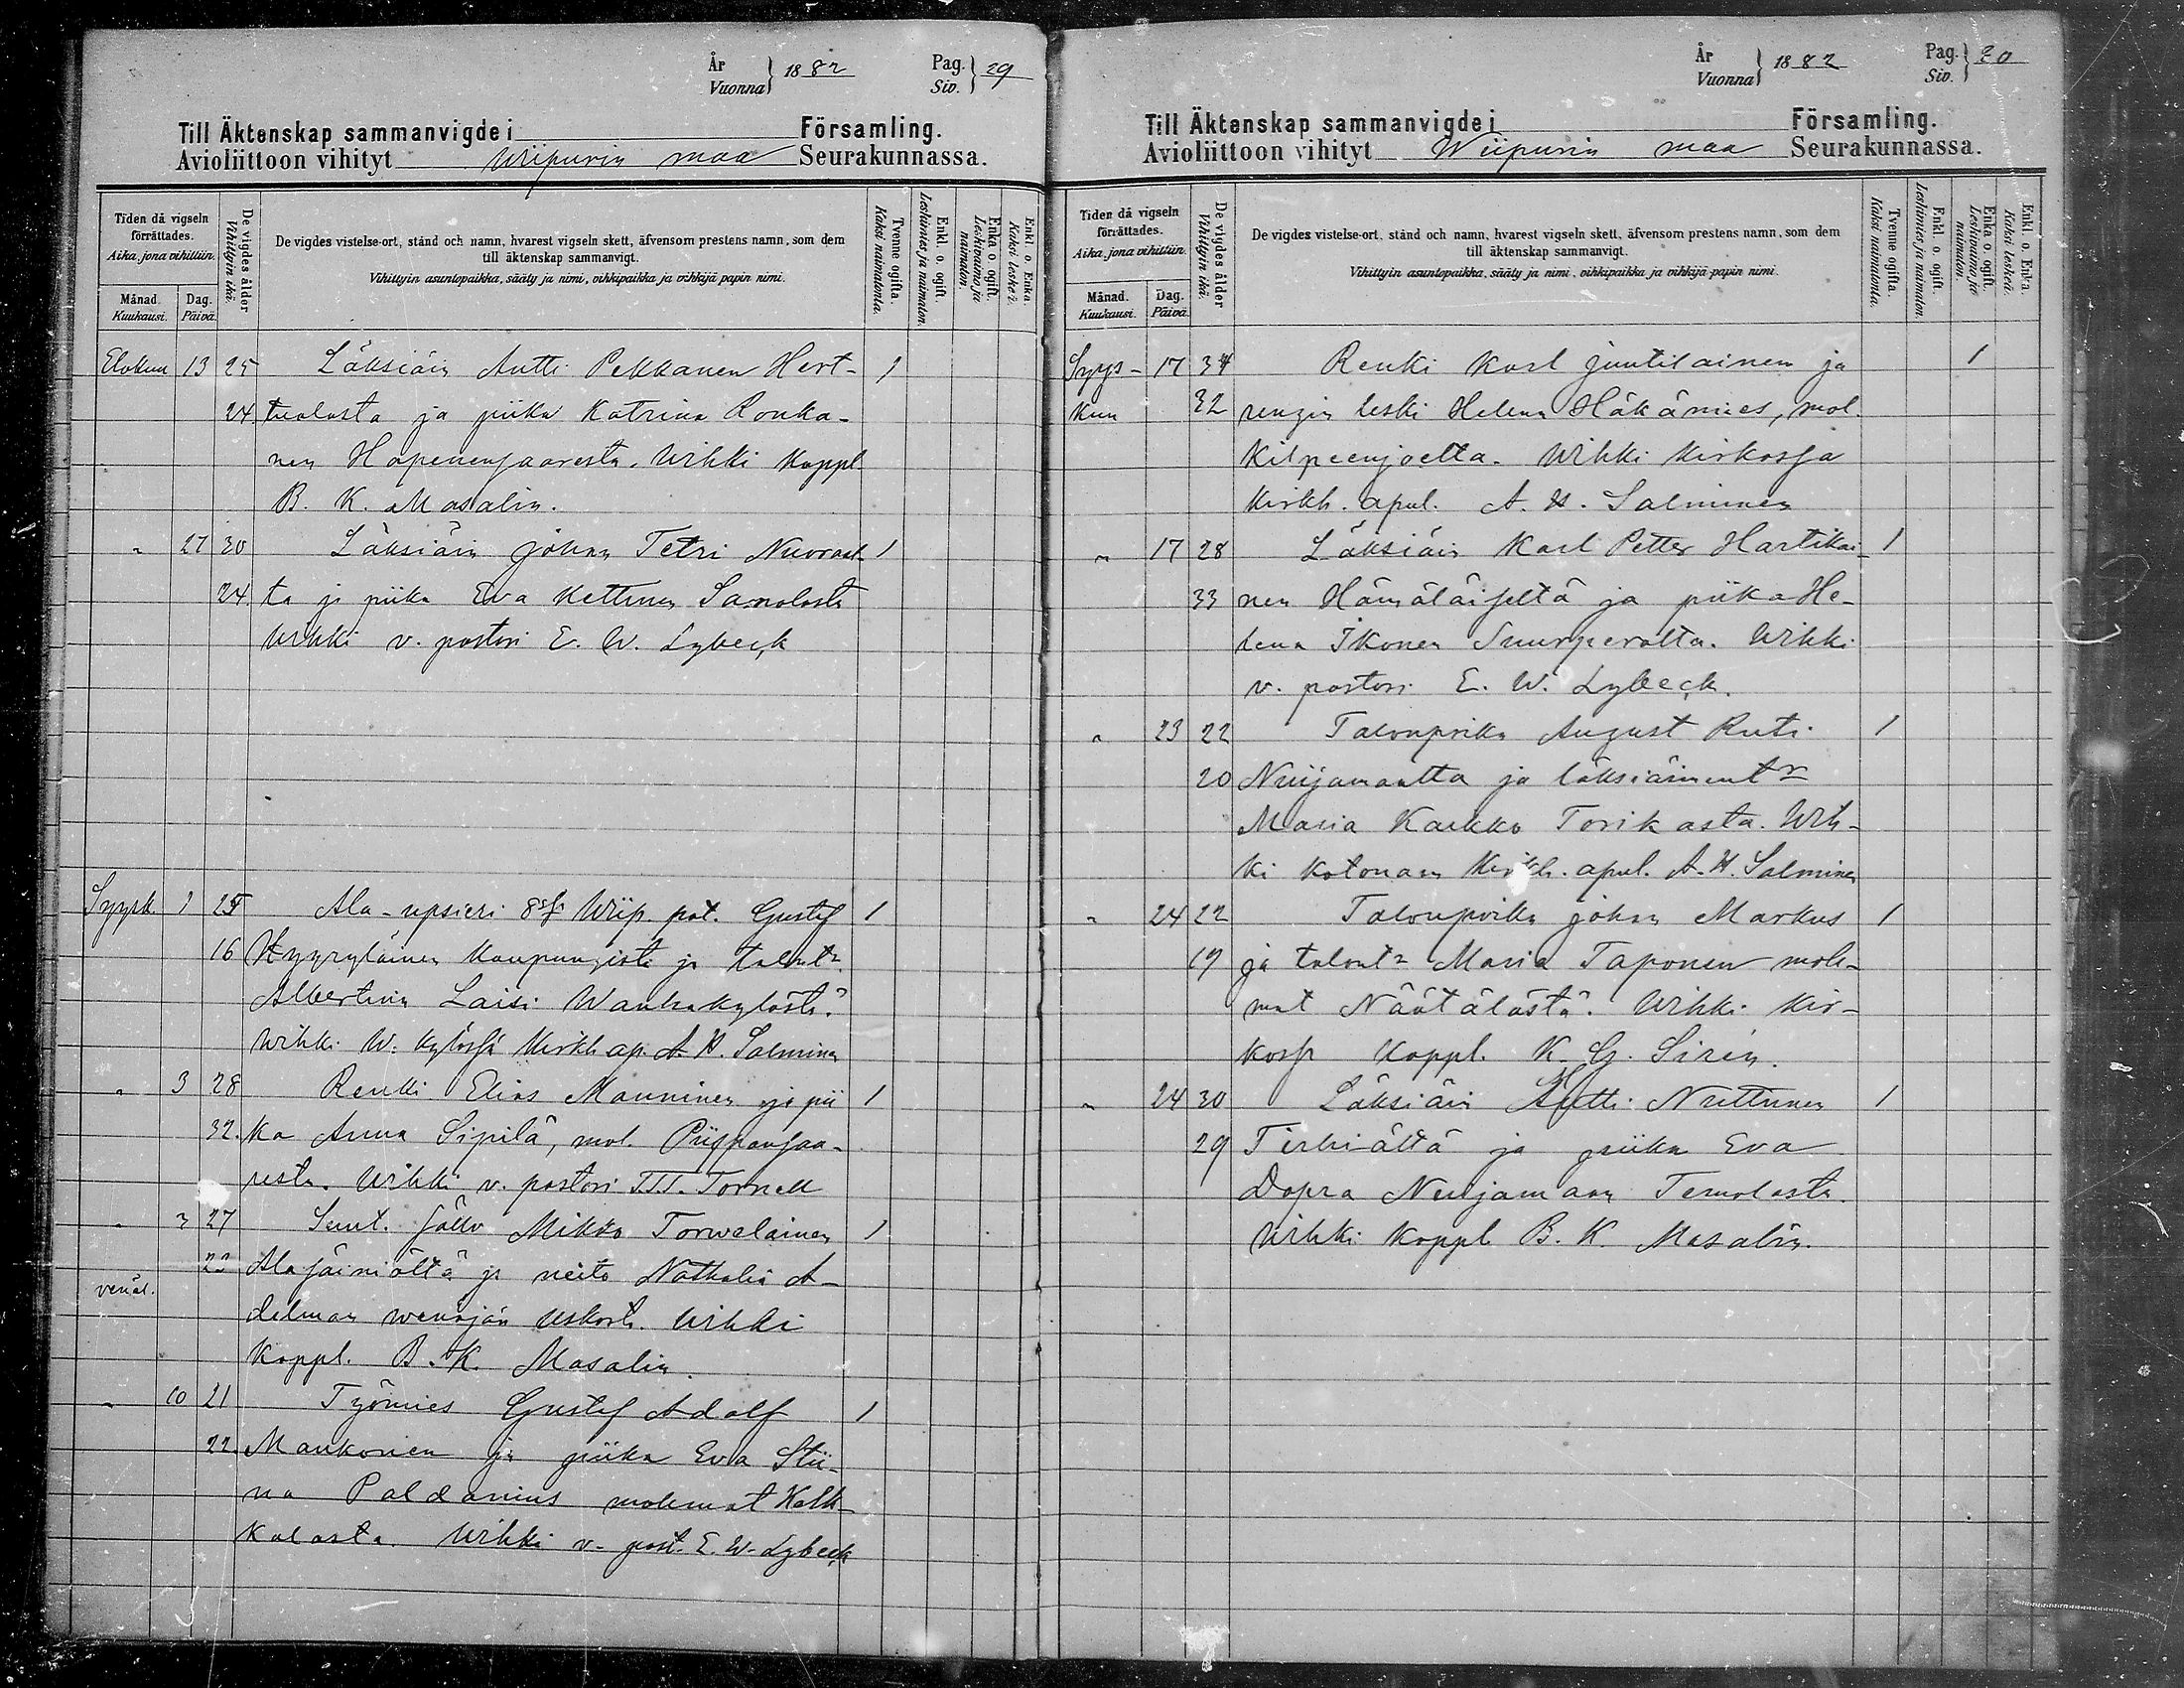 År
Vuonna } 1882
Pag.
Siv. } 29
Till Äktenskap sammanvigde i Församling.
Avioliittoon vihityt Wiipurin maa Seurakunnassa.
Tiden då vigseln förrättades.
Aika, jona vihittiin.
Månad.
Kuukausi.
Dag.
Päivä.
De vigdes ålder
Vihittyin ikä.
De vigdes vistelse-ort, stånd och namn, hvarest vigseln skett, äfvensom prestens namn, som dem
till äktenskap sammanvigt.
Vihittyin asuntopaikka, sääty ja nimi, vihkipaikka ja vihkijä papin nimi.
Tvenne ogifta.
Kaksi naimatonta.
Enkl. o. ogift.
Leskimies ja naimaton.
Enka o. ogift.
Leskivaimo ja naimaton.
Enkl. o. Enka.
Kaksi leskeä.
Elokuu 13 25 Läksiäin Antti Pekkanen Hert- 1
24. tualasta ja piika Katrina Ronka-
nen Hapenensaaresta. Wihki Kappl.
B. K. Masalin.
" 27 30 Läksiäin Johan Tetri Nuoraat- 1
24. ta ja piika Eva Kettunen Samolasta
Wihki v. pastori E. W. Lybeck
Syysk. 1 25 Ala-upsieri 8s f. Wiip. pat. Gustaf 1
16 Kyyryläinen Kaupungista ja talontr
Albertina Laisi Wanhakylästä.
Wihki W. kylässä Kirkh. ap. A. H. Salminen
" 3 28 Renki Elias Manninen ja pii 1
32. ka Anna Sipilä, mol. Piispansaa-
resta. Wihki v. pastori Tornell
" 3 27 Mikko Torwelainen 1
23 Alasäiniöltä ja neito Nathalia A-
venäl.
delman wenäjän uskosta. Wihki
Kappl. B. K. Masalin.
" 10 21 Työmies Gustaf Adolf 1
22. Mankonen ja piika Eva Stii-
na Paldanius molemat Kark-
kalasta. Wihki v. past. E. W. Lybeck
År
Vuonna } 1882
Pag.
Siv. } 30
Till Äktenskap sammanvigde i Församling.
Avioliittoon vihityt Wiipurin maa Seurakunnassa.
Tiden då vigseln förrättades.
Aika, jona vihittiin.
Månad.
Kuukausi.
Dag.
Päivä.
De vigdes ålder
Vihittyin ikä.
De vigdes vistelse-ort, stånd och namn, hvarest vigseln skett, äfvensom prestens namn, som dem
till äktenskap sammanvigt.
Vihittyin asuntopaikka, sääty ja nimi, vihkipaikka ja vihkijä papin nimi.
Tvenne ogifta.
Kaksi naimatonta.
Enkl. o. ogift.
Leskimies ja naimaton.
Enka o. ogift.
Leskivaimo ja naimaton.
Enkl. o. Enka.
Kaksi leskeä.
Syys- 17 34 Renki Karl Juutilainen ja 1
kuu 32 rengin leski Helena Häkämies, mol
Kilpeenjoelta. Wihki Kirkossa
Kirkh. apul. A. H. Salminen
" 17 28 Läksiäin Karl Petter Hartikai- 1
33 nen Hämäläiseltä ja piika He-
lena Ikonen Suurperolta. Wihki
v. pastori E. W. Lybeck.
" 23 22 Talonpoika August Ruti 1
20 Nuijamaalta ja läksiäimentr
Maria Karkko Torikasta. Wih-
ki kotonaan Kirkh. apul. A. H. Salminen
" 24 22 Talonpoika Johan Markus 1
19 ja talontr Maria Taponen mole-
mat Näätälästä. Wihki Kir-
kossa Kappl. K. G. Siren.
" 24 30 Läksiäin Antti Nuttunen 1
29 Terhiältä ja piika Eva
Dopra Nuijamaan Temolasta.
Wihki Kappl. B. K. Masalin.